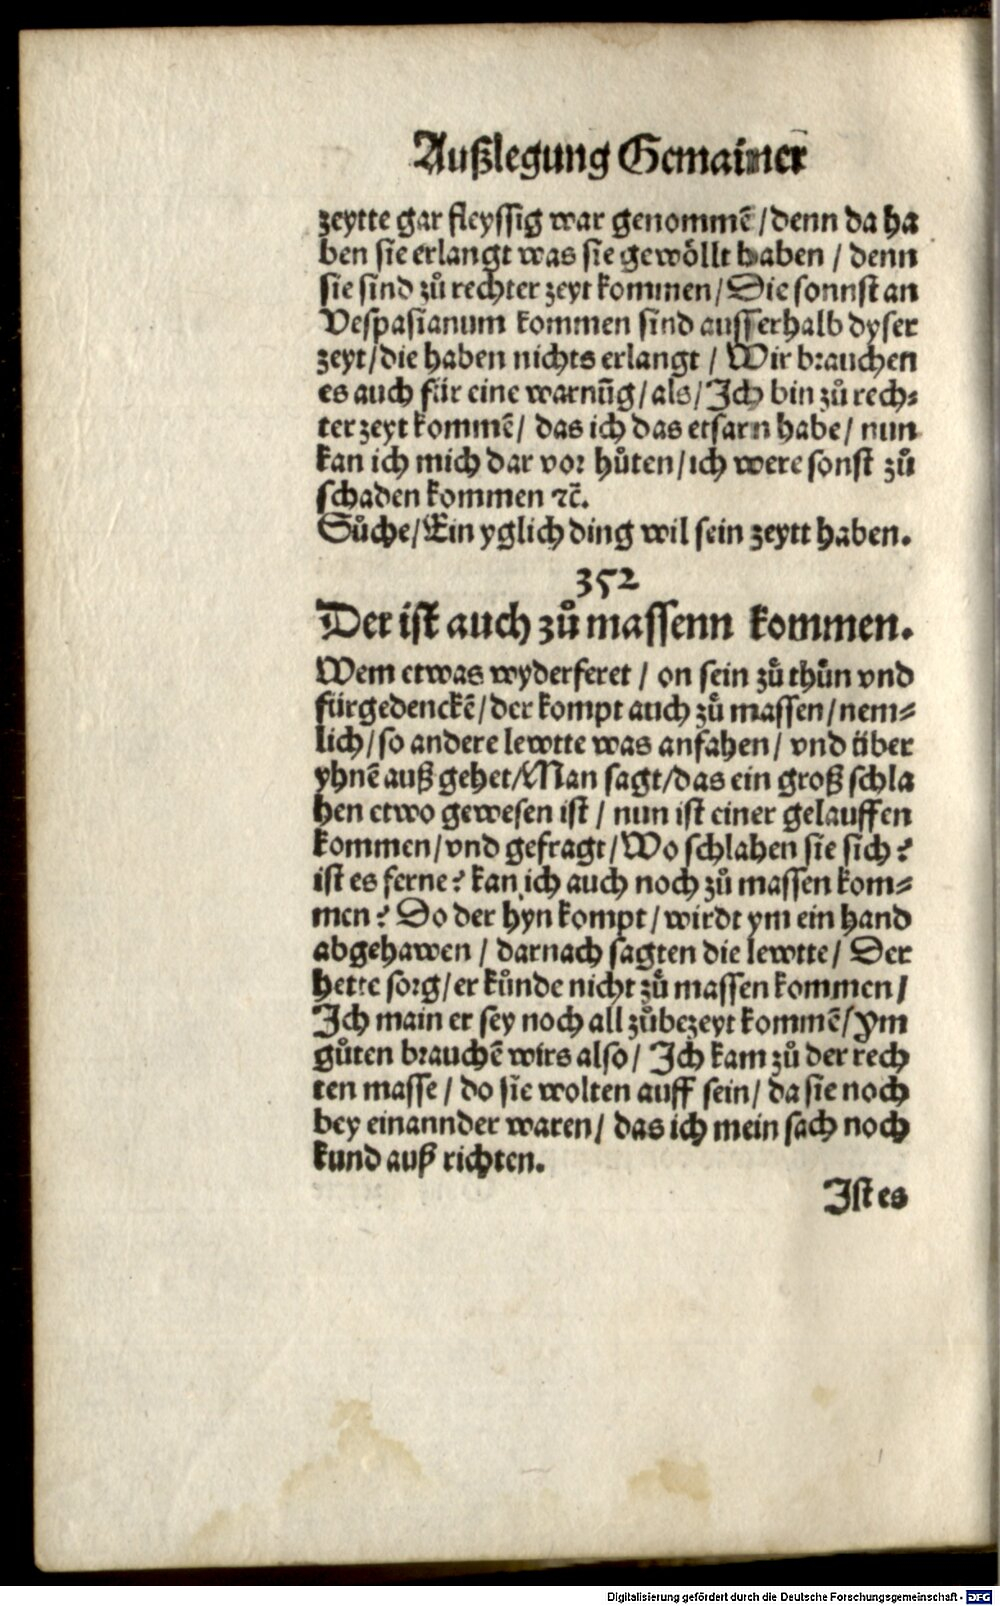 Außlegung Gemainer
zeytte gar fleyssig war genommē / denn da ha
ben sie erlangt was sie gewöllt haben / denn
sie sind zů rechter zeyt kommen / Die sonnst an
Vespasianum kommen sind ausserhalb dyser
zeyt / die haben nichts erlangt / Wir brauchen
es auch für eine warnūg / als / Ich bin zů rech⸗
ter zeyt kommē / das ich das erfarn habe / nun
kan ich mich dar vor hůten / ich were sonst zů
schaden kommen ⁊c̄.
Sůche / Ein yglich ding wil sein zeytt haben.
352
Der ist auch zů massenn kommen.
Wem etwas wyderferet / on sein zů thůn vnd
fürgedenckē / der kompt auch zů massen / nem⸗
lich / so andere lewtte was anfahen / vnd über
yhnē auß gehet / Man sagt / das ein groß schla
hen etwo gewesen ist / nun ist einer gelauffen
kommen / vnd gefragt / Wo schlahen sie sich?
ist es ferne? kan ich auch noch zů massen kom⸗
men? Do der hyn kompt / wirdt ym ein hand
abgehawen / darnach sagten die lewtte / Der
hette sorg / er kůnde nicht zů massen kommen /
Ich main er sey noch all zůbezeyt kommē / Ym
gůten brauchē wirs also / Ich kam zů der rech
ten masse / do sie wolten auff sein / da sie noch
bey einannder waren / das ich mein sach noch
kund auß richten.
Ist es
Digitalisierung gefördert durch die Deutsche Forschungsgemeinschaft - DFG